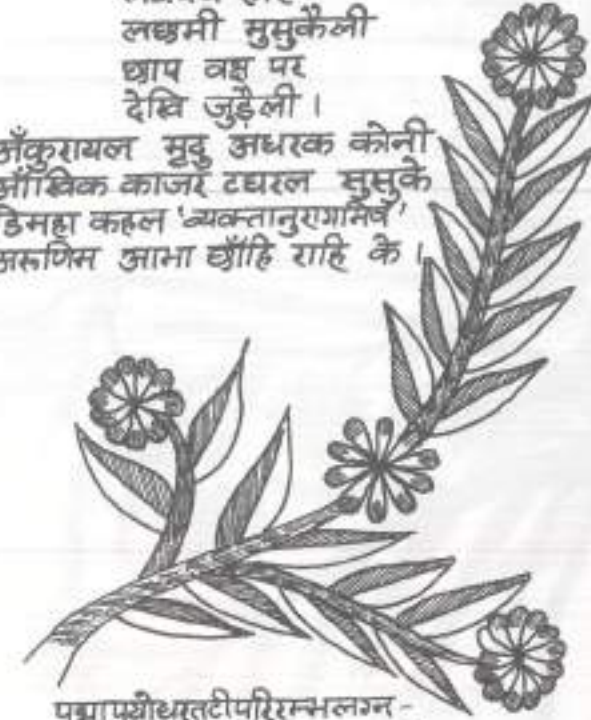 लछमी मुसुकैली
छाप वक्ष पर
देखि जुड़ैली ।
अँकुरायल मृदु अधरक कोनी
आँखिक काजर टघरल सुसुके
डिमहा कहल 'व्यक्तानुरागमिव'
अरूणिम आभा छाँहि राहि के ।
पद्मापयोधरतटीपरिरम्भलग्न-